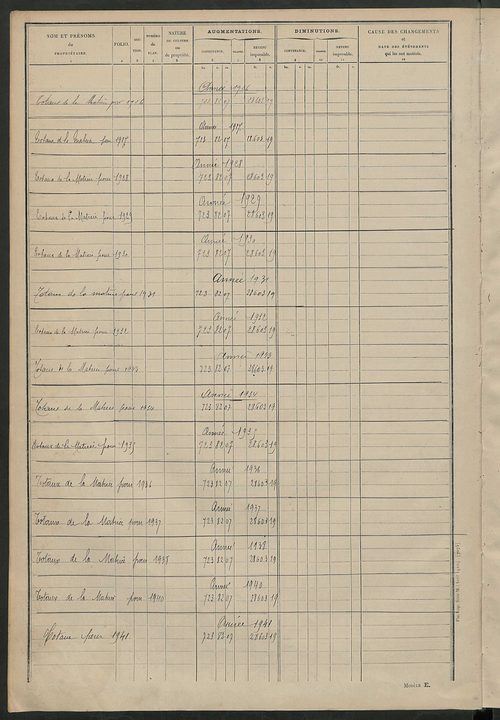 NOM ET PRÉNOMS
du
PROPRIÉTAIRE.
FOLIO.
NUMÉRO
du
PLAN.
NATURE
DE CULTURE
ou
de propriété.
AUGMENTATIONS.
CONTENANCE.
CLASSE.
REVENU
imposable.
DIMINUTIONS.
CONTENANCE.
CLASSE.
REVENU
imposable.
CAUSE DES CHANGEMENTS
et
DATE DES ÉVÉNEMENTS
qui les ont motivés.
Année 1926
Totaux de la Matrice pour 1926 723 82 07 28603 19
Année 1927
Totaux de la Matrice pour 1927 723 82 07 28603 19
Année 1928
Totaux de la Matrice pour 1928 723 82 07 28603 19
Année 1929
Totaux de la Matrice pour 1929 723 82 07 28603 19
Année 1930
Totaux de la Matrice pour 1930 723 82 07 28603 19
Année 1931
Totaux de la matrice pour 1931 723 82 07 28603 19
Année 1932
Totaux de la Matrice pour 1932 723 82 07 28603 19
Année 1933
Totaux de la Matrice pour 1933 723 82 07 28603 19
Année 1934
Totaux de la Matrice pour 1934 723 82 07 28603 19
Année 1935
Totaux de la Matrice pour 1935 723 82 07 28603 19
Année 1936
Totaux de la Matrice pour 1936 723 82 07 28603 19
Année 1937
Totaux de la Matrice pour 1937 723 82 07 28603 19
Année 1938
Totaux de la Matrice pour 1938 723 82 07 28603 19
Année 1940
Totaux de la Matrice pour 1940 723 82 07 28603 19
Année 1941
Totaux pour 1941 723 82 07 28603 19
MODÈLE E.